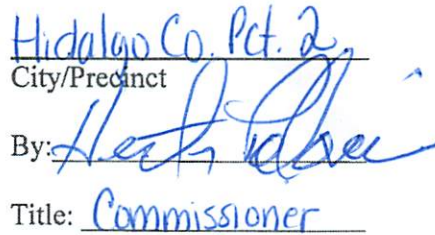 Hidalgo Co. Pct. 2
City/Precinct
By:
Title: Commissioner